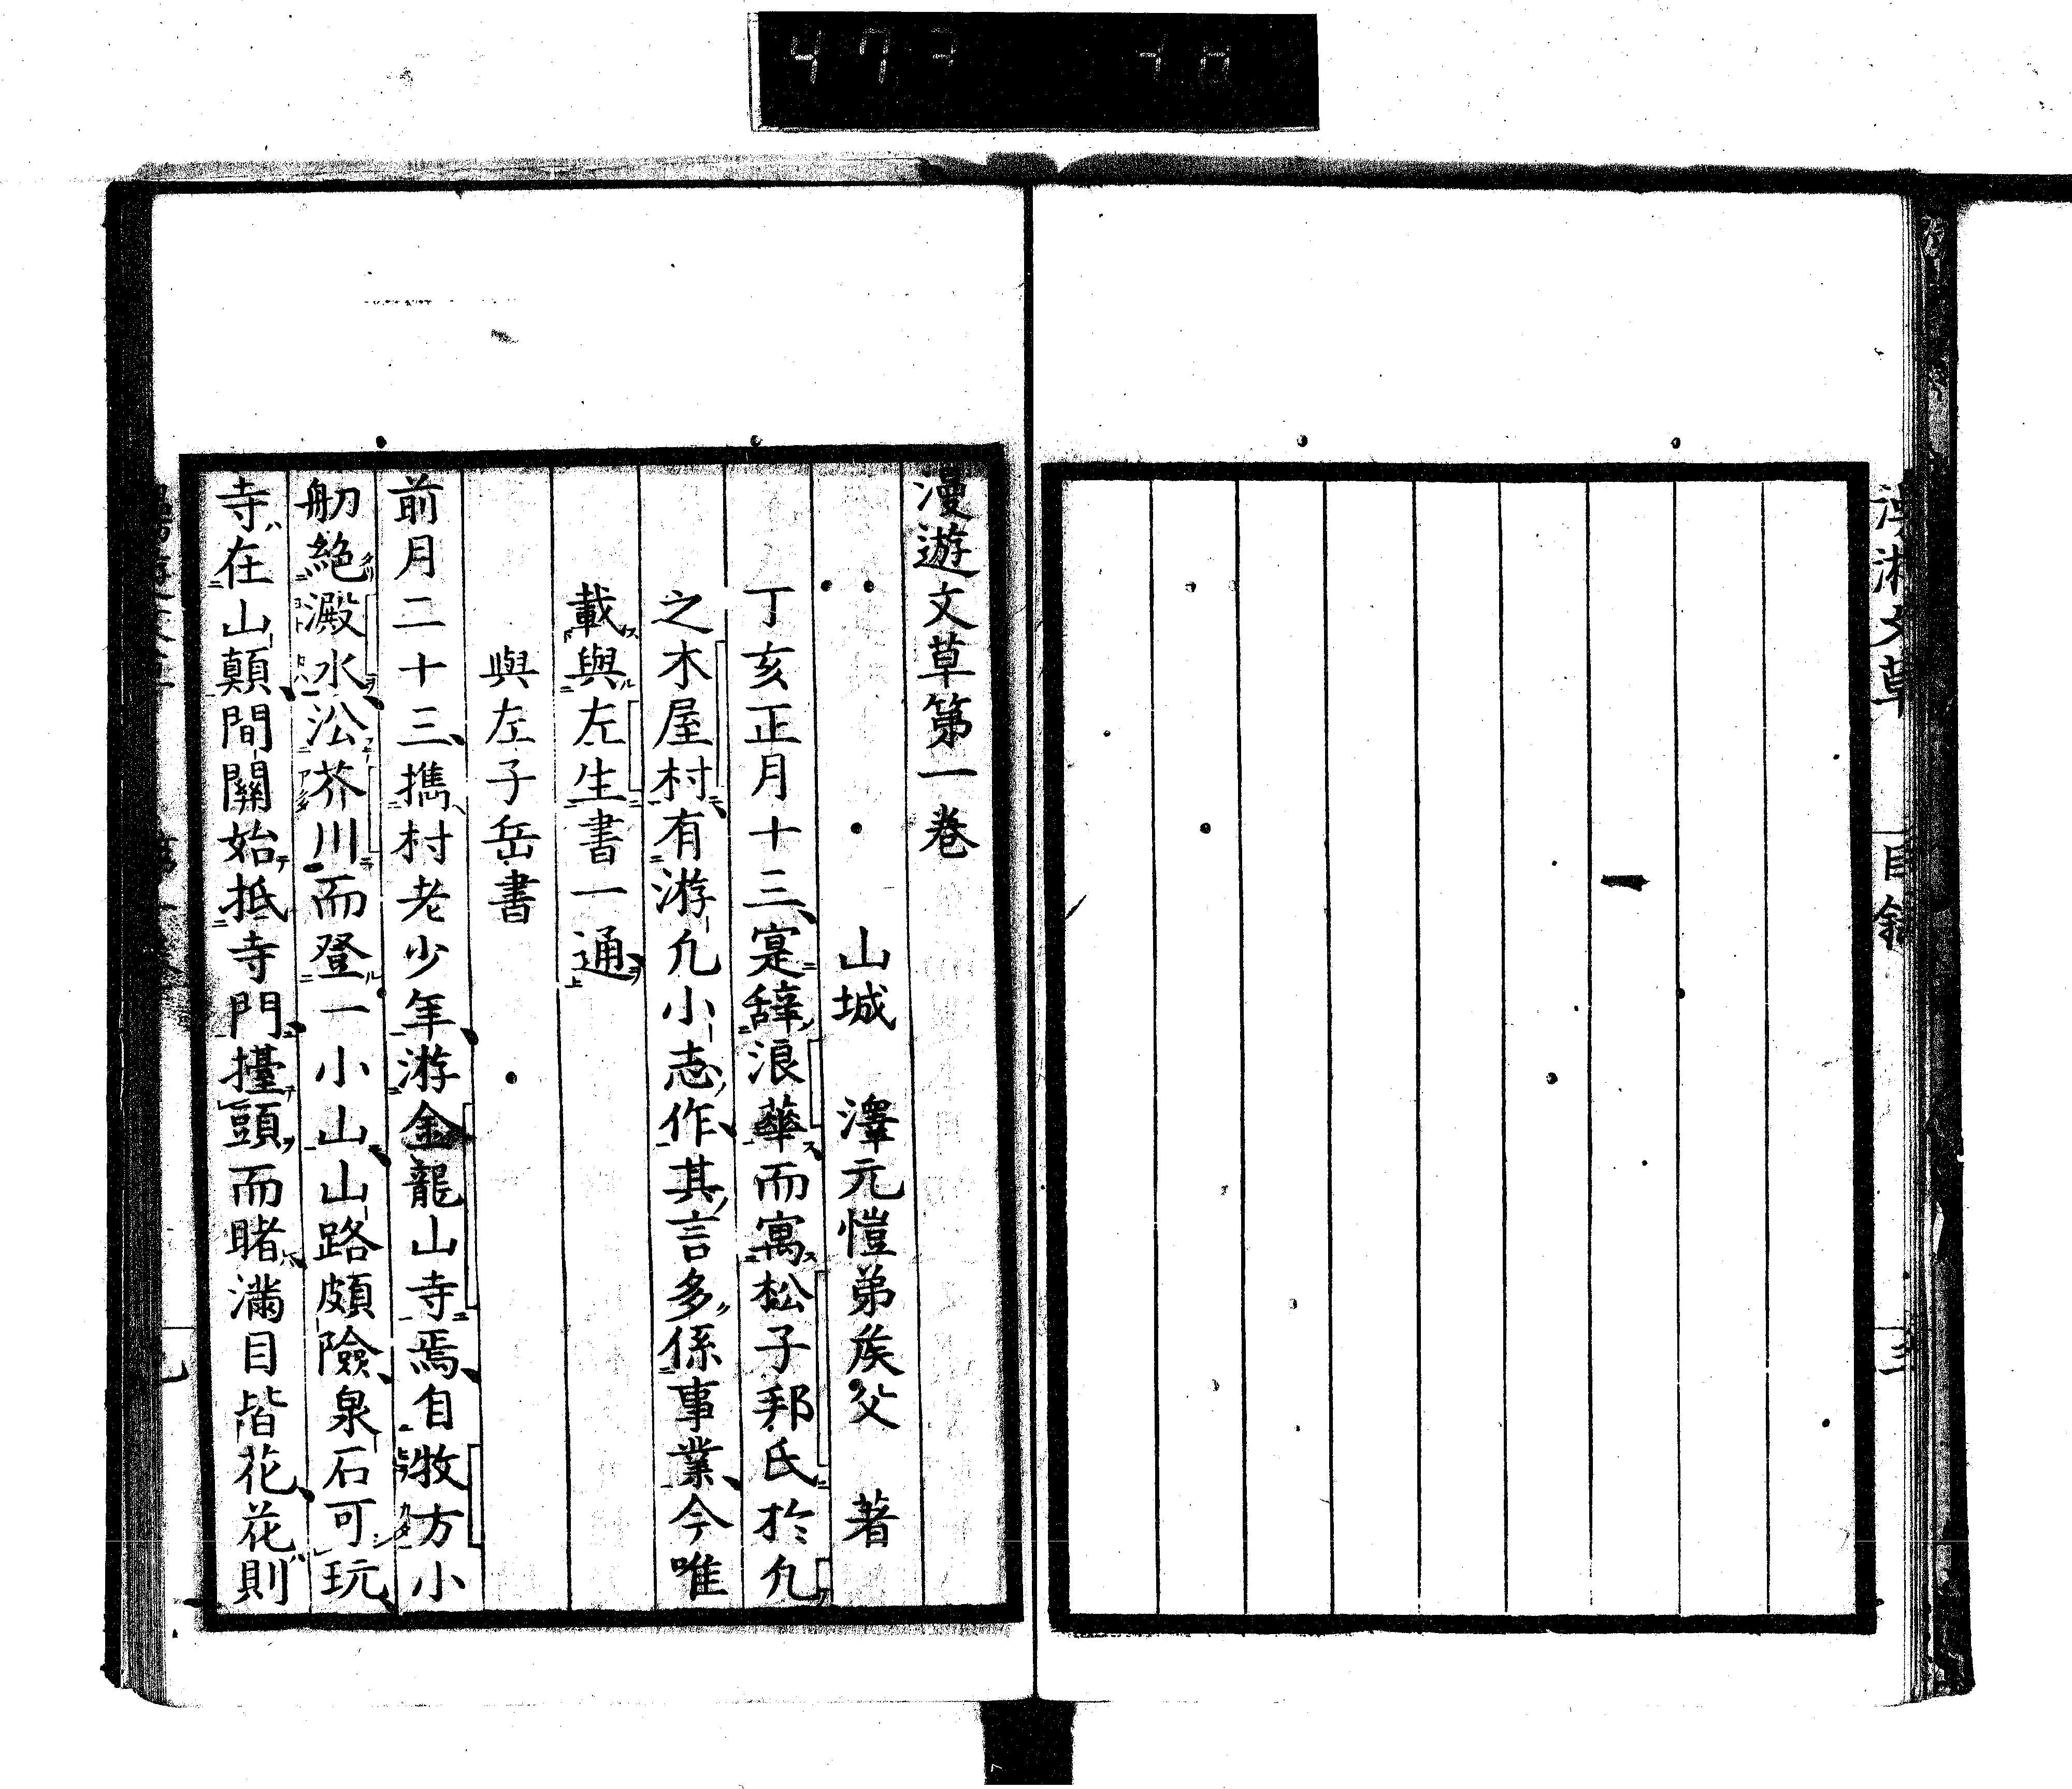 漫遊文草第一巻
山城 澤元愷弟矦父 著
丁亥正月十三寔辭浪華而寓松子邦氏於凢
之木屋村有游凢小志作其言多係事業今唯
載與左生書一通
與左子岳書
前月二十三擕村老少年游金龍山寺焉自牧方小
舠絶澱水㳂芥川而登一小山山路頗險泉石可玩
寺在山顛間關始抵寺門擡頭而睹滿目皆花花則